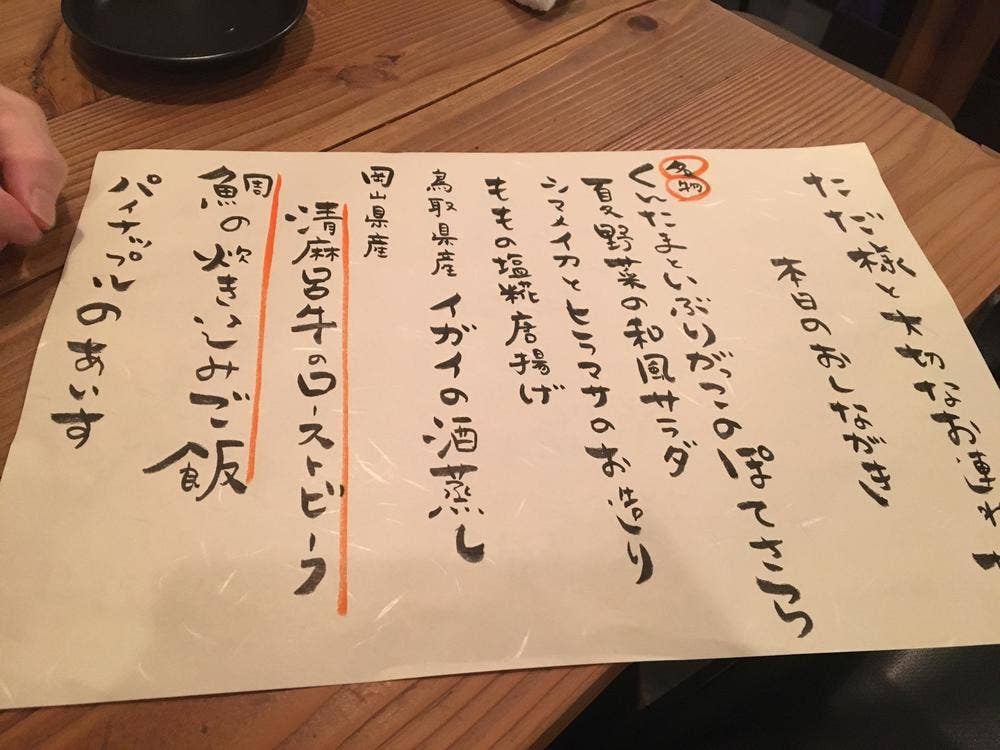 ただ様と大切なお連れ
本日のおしながき
名物
くんたまといぶりがっこのぽてさらら
夏野菜の和風サラダ
シマメイカとヒラマサのお造り
ももの塩糀唐揚げ
鳥取県産 イガイの酒蒸し
岡山県産
清麻呂牛のローストビーフ
鯛の炊きこみご飯
パイナップルのあいす